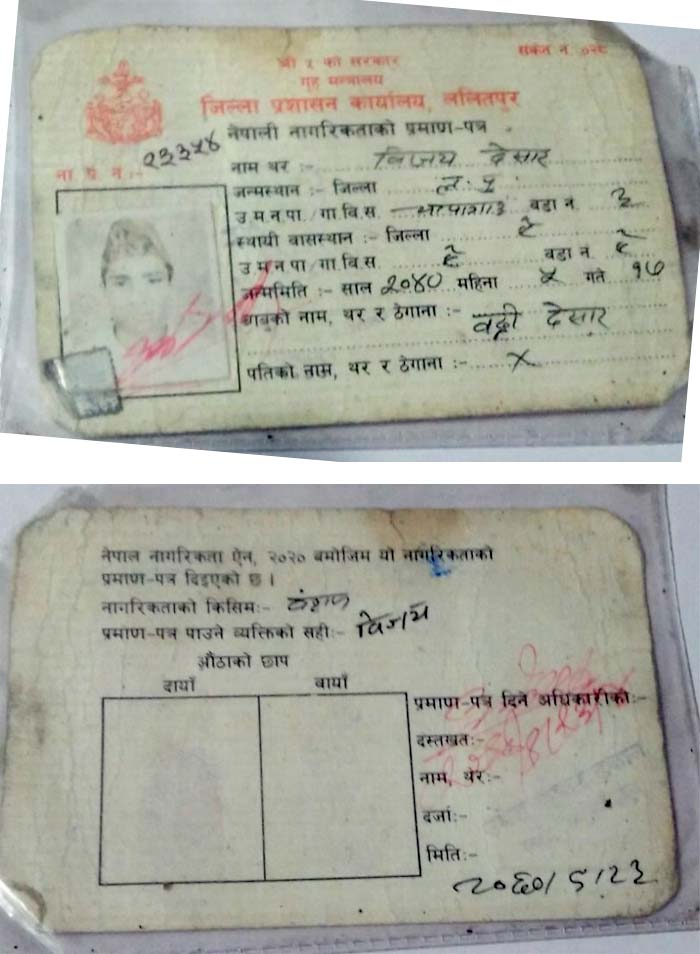 श्री ५ को सरकार
गृह मन्त्रालय
जिल्ला प्रशासन कार्यालय, ललितपुर
नेपाली नागरिकताको प्रमाण-पत्र
ना. प्र. नं.:- २३३५४
नाम थर :- विजय देसार
जन्मस्थान :- जिल्ला ल. पु.
उ.म.न.पा./गा.वि.स. वडा नं. ३
स्थायी वासस्थान :- जिल्ला ऐ
उ.म.न.पा./गा.वि.स. ऐ वडा नं. ऐ
जन्ममिति :- साल २०४० महिना ५ गते १७
बाबुको नाम, थर र ठेगाना :- वद्री देसार
पतिको नाम, थर र ठेगाना :- x
नेपाल नागरिकता ऐन, २०२० बमोजिम यो नागरिकताको
प्रमाण-पत्र दिइएको छ ।
नागरिकताको किसिम:- वंशज
प्रमाण-पत्र पाउने व्यक्तिको सही:- विजय
औंठाको छाप
दायाँ बायाँ
प्रमाण-पत्र दिने अधिकारीको:-
दस्तखत:-
नाम, थर:-
दर्जा:-
मिति:-
२०६०/८/२३